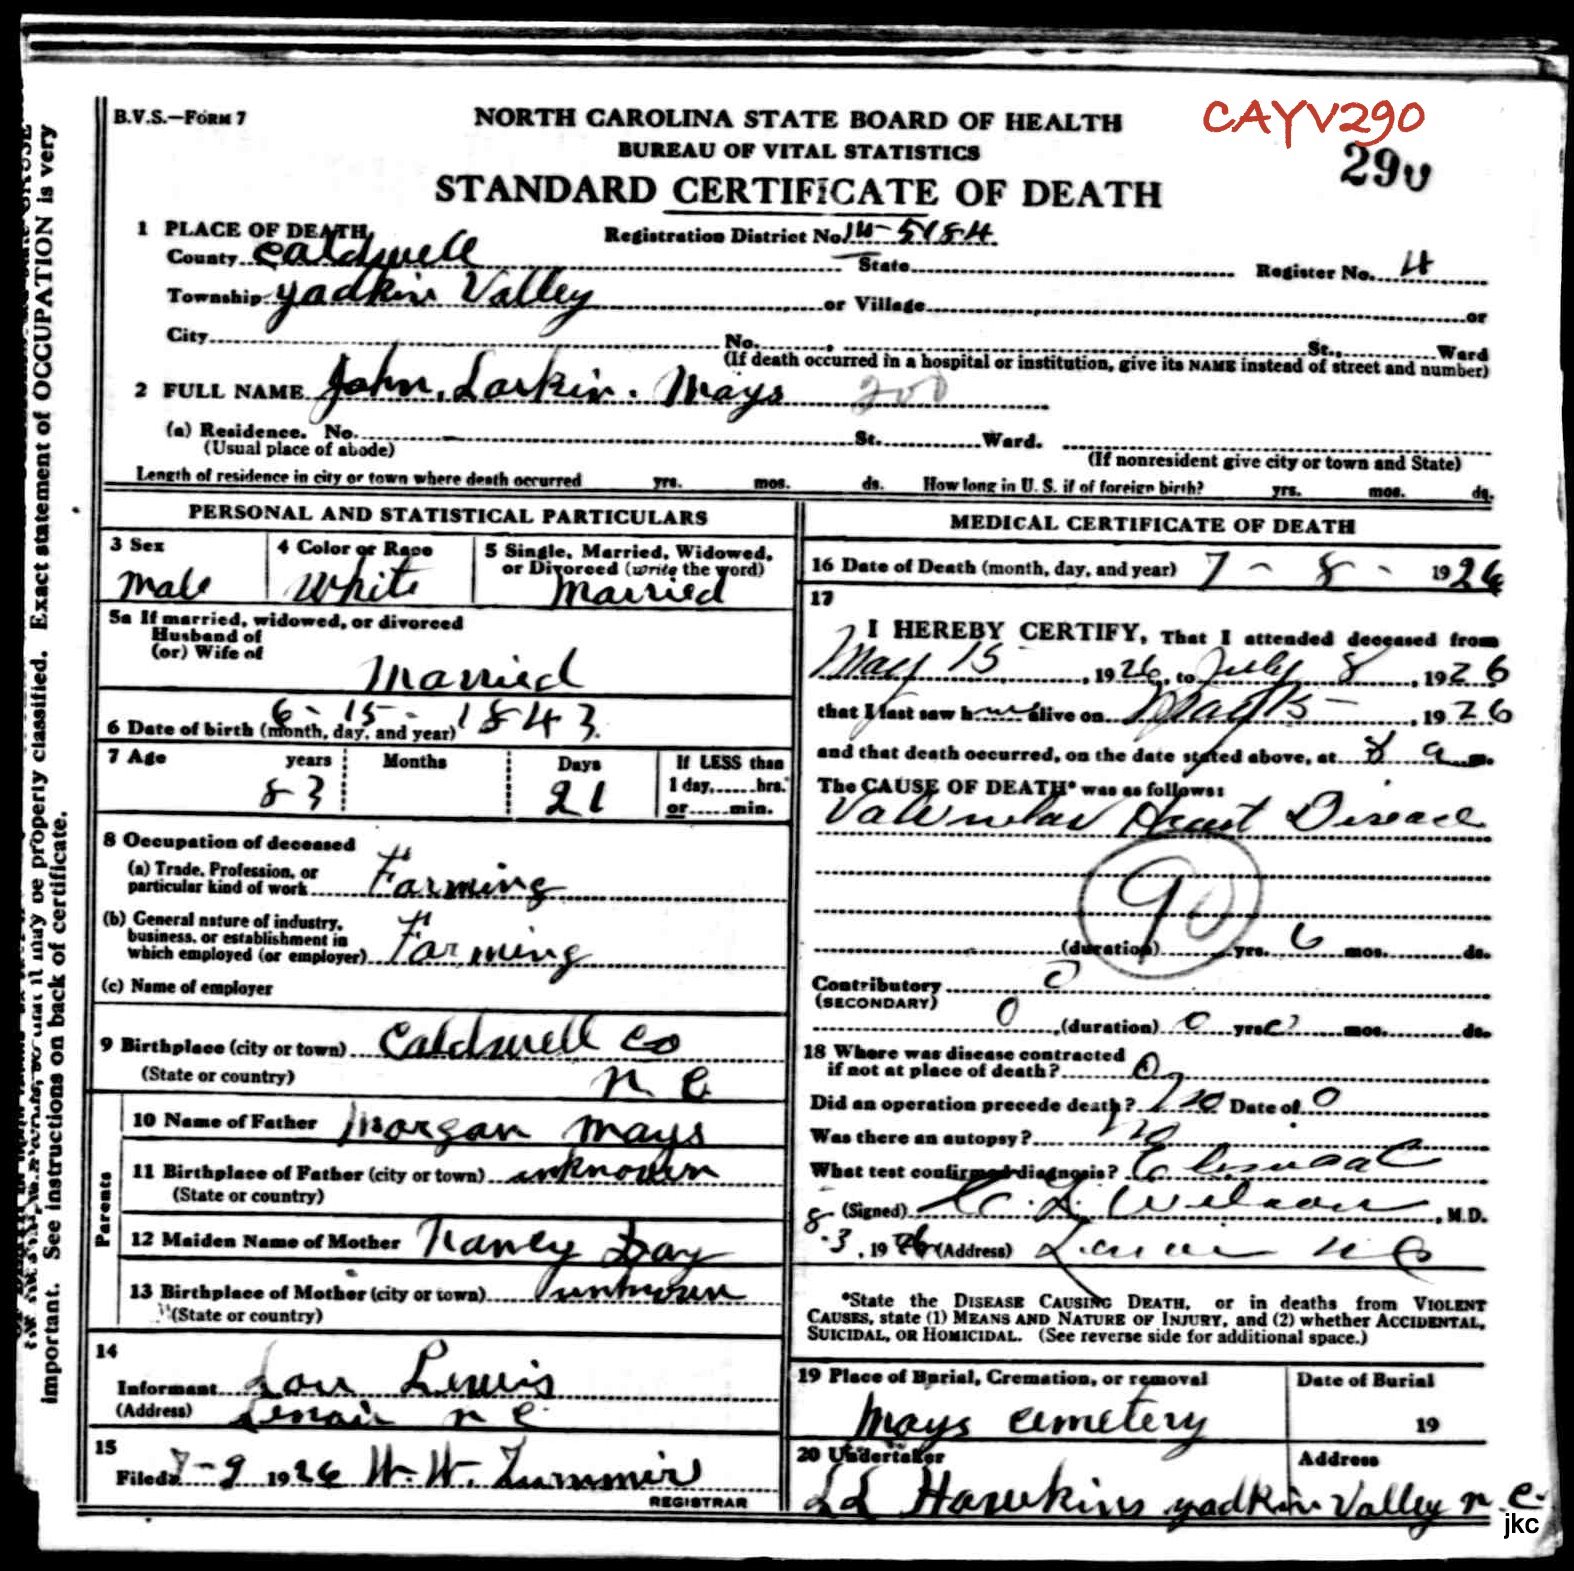 B.V.S.—FORM 7
NORTH CAROLINA STATE BOARD OF HEALTH
CAYV290
BUREAU OF VITAL STATISTICS
290
STANDARD CERTIFICATE OF DEATH
1 PLACE OF DEATH
Registration District No. 14-5184
County Caldwell State Register No. 4
Township Yadkin Valley or Village or
City No. , St., Ward
(If death occurred in a hospital or institution, give its NAME instead of street and number)
2 FULL NAME John. Larkin. Mays 200
(a) Residence. No. St. Ward.
(Usual place of abode) (If nonresident give city or town and State)
Length of residence in city or town where death occurred yrs. mos. ds. How long in U. S. if of foreign birth? yrs. mos. ds.
PERSONAL AND STATISTICAL PARTICULARS
3 Sex 4 Color or Race 5 Single, Married, Widowed,
or Divorced (write the word)
Male White Married
5a If married, widowed, or divorced
Husband of
(or) Wife of
Married
6 Date of birth (month, day, and year) 6-15-1843
7 Age years Months Days If LESS than
1 day, hrs.
83 21 or min.
8 Occupation of deceased
(a) Trade, Profession, or
particular kind of work Farming
(b) General nature of industry,
business, or establishment in
which employed (or employer) Farming
(c) Name of employer
9 Birthplace (city or town) Caldwell Co
(State or country) N C
Parents
10 Name of Father Morgan Mays
11 Birthplace of Father (city or town) unknown
(State or country)
12 Maiden Name of Mother Nancy Day
13 Birthplace of Mother (city or town) unknown
(State or country)
14
Informant Lou Lewis
(Address) Lenoir N C
15
Filed 7-9 1926 W. W.
REGISTRAR
MEDICAL CERTIFICATE OF DEATH
16 Date of Death (month, day, and year) 7-8-1926
17
I HEREBY CERTIFY, That I attended deceased from
May 15, 1926, to July 8, 1926
that I last saw h alive on May 15, 1926
and that death occurred, on the date stated above, at 8 a m.
The CAUSE OF DEATH* was as follows:
Valvular Heart Disease
90
(duration) yrs. 6 mos. ds.
Contributory 0
(SECONDARY)
0 (duration) 0 yrs. 0 mos. ds.
18 Where was disease contracted
if not at place of death? 0
Did an operation precede death? no Date of 0
Was there an autopsy? no
What test confirmed diagnosis? Clinical
(Signed) C. L. Wilson, M.D.
8-3, 1926 (Address) Lenoir N C
*State the DISEASE CAUSING DEATH, or in deaths from VIOLENT
CAUSES, state (1) MEANS AND NATURE OF INJURY, and (2) whether ACCIDENTAL,
SUICIDAL, OR HOMICIDAL. (See reverse side for additional space.)
19 Place of Burial, Cremation, or removal Date of Burial
Mays Cemetery 19
20 Undertaker Address
LL Hawkins Yadkin Valley N. C.
jkc
may be properly classified. Exact statement of OCCUPATION is very
important. See instructions on back of certificate.